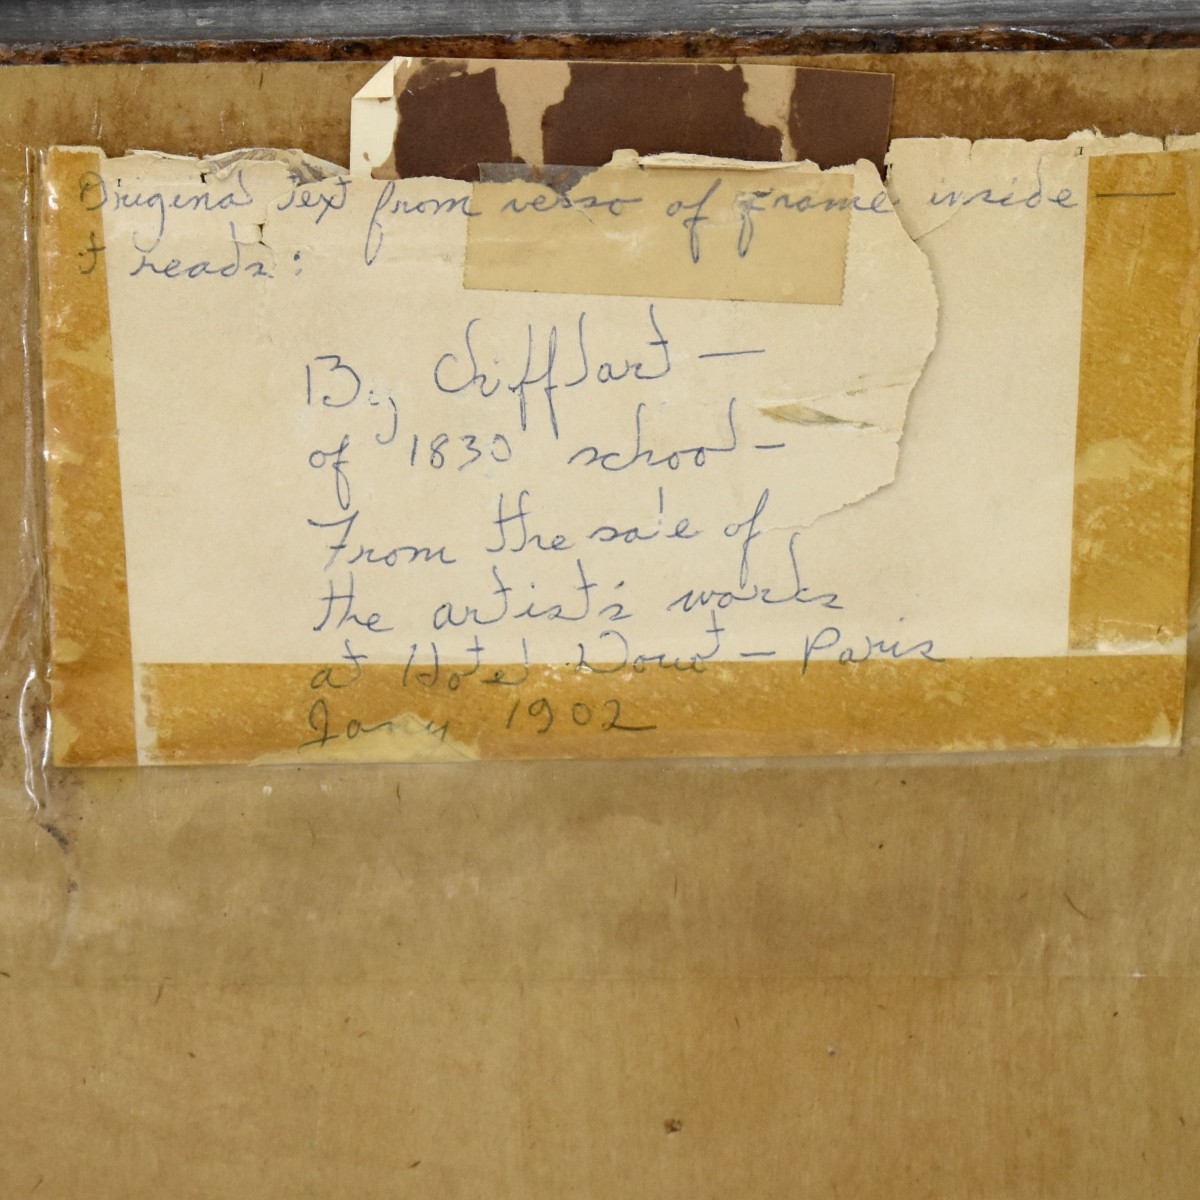 Original text from verso of frame inside —
it reads:
By Chifflart —
of 1830 school –
From the sale of
the artist's works
at Hotel Drouot – Paris
Jany 1902